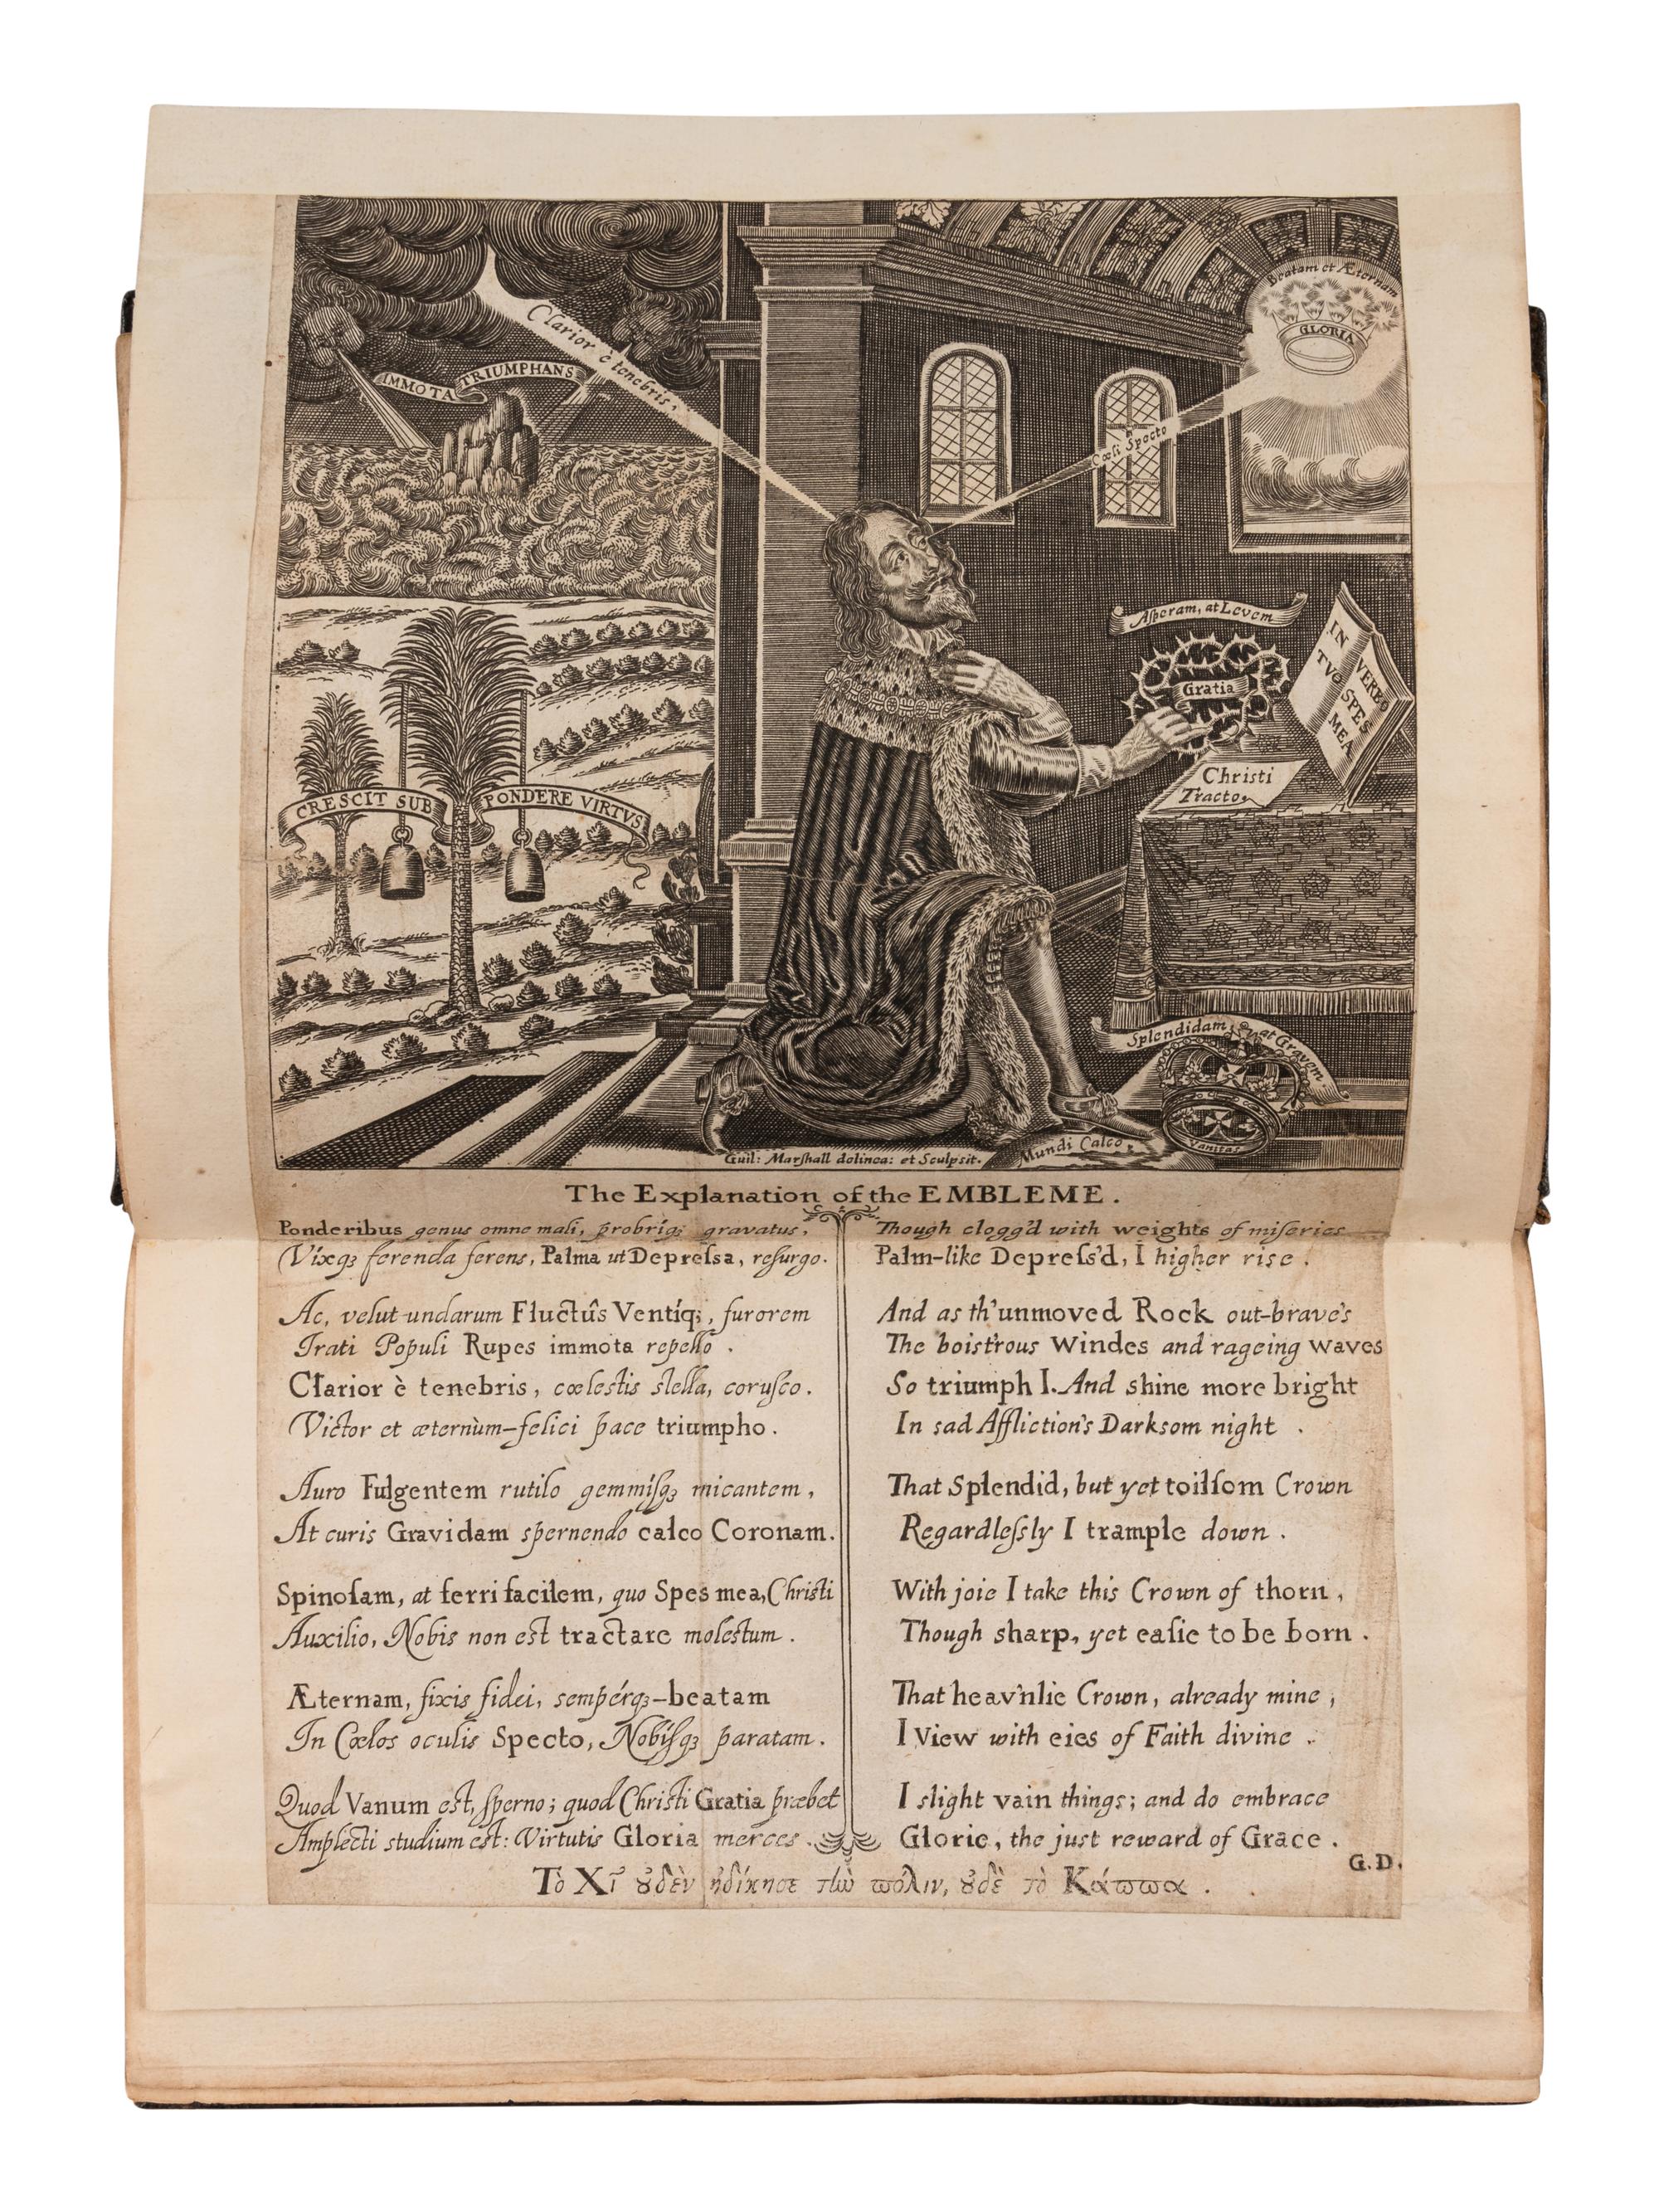 Clarior è tenebris.
IMMOTA TRIUMPHANS
Beatam et Æternam
GLORIA
Cœli Specto
Asperam, at Levem
Gratia
IN VERBO
TVO SPES
MEA
Christi
Tracto.
CRESCIT SUB PONDERE VIRTVS
Splendidam, at Gravem
Vanitas
Mundi Calco.
Guil: Marſhall delinea: et Sculpsit.
The Explanation of the EMBLEME.
Ponderibus genus omne mali, probriq; gravatus,
Vixq; ferenda ferens, Palma ut Depreſsa, reſurgo.
Ac, velut undarum Fluctûs Ventíq;, furorem
Irati Populi Rupes immota repello.
Clarior è tenebris, cœlestis stella, coruſco.
Victor et æternùm-felici pace triumpho.
Auro Fulgentem rutilo gemmíſq; micantem,
At curis Gravidam spernendo calco Coronam.
Spinoſam, at ferri facilem, quo Spes mea, Christi
Auxilio, Nobis non est tractare molestum.
Æternam, fixis fidei, sempérq;-beatam
In Cœlos oculis Specto, Nobíſq; paratam.
Quod Vanum est, ſperno; quod Christi Gratia præbet
Amplecti studium est: Virtutis Gloria merces.
Though clogg'd with weights of miſeries
Palm-like Depreſs'd, I higher rise.
And as th'unmoved Rock out-brave's
The boist'rous Windes and rageing waves
So triumph I. And shine more bright
In sad Affliction's Darksom night.
That Splendid, but yet toilſom Crown
Regardleſsly I trample down.
With joie I take this Crown of thorn,
Though sharp, yet eaſie to be born.
That heav'nlie Crown, already mine,
I View with eies of Faith divine.
I slight vain things; and do embrace
Glorie, the just reward of Grace.
G.D.
Τὸ Χῖ ȣ̓δὲν ἠδίκησε τὴν πόλιν, ȣ̓δὲ τὸ Κάππα.